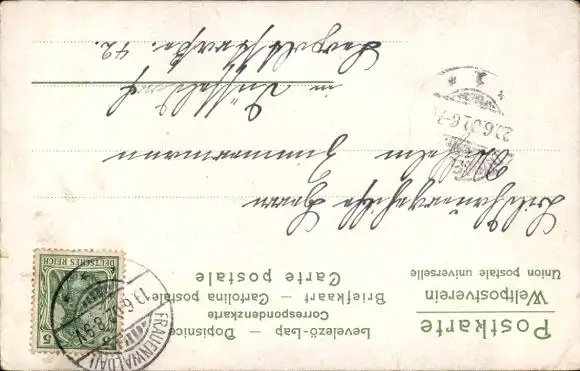 Postkarte
Weltpostverein
Union postale universelle
Levelező-Lap — Dopisnice
Correspondenzkarte
Briefkaart — Cartolina postale
Carte postale
DEUTSCHES REICH
5
FRAUENWALDAU
Herrn
Wilhelm Zimmermann
in Düsseldorf
Leopoldstrasse. 42.